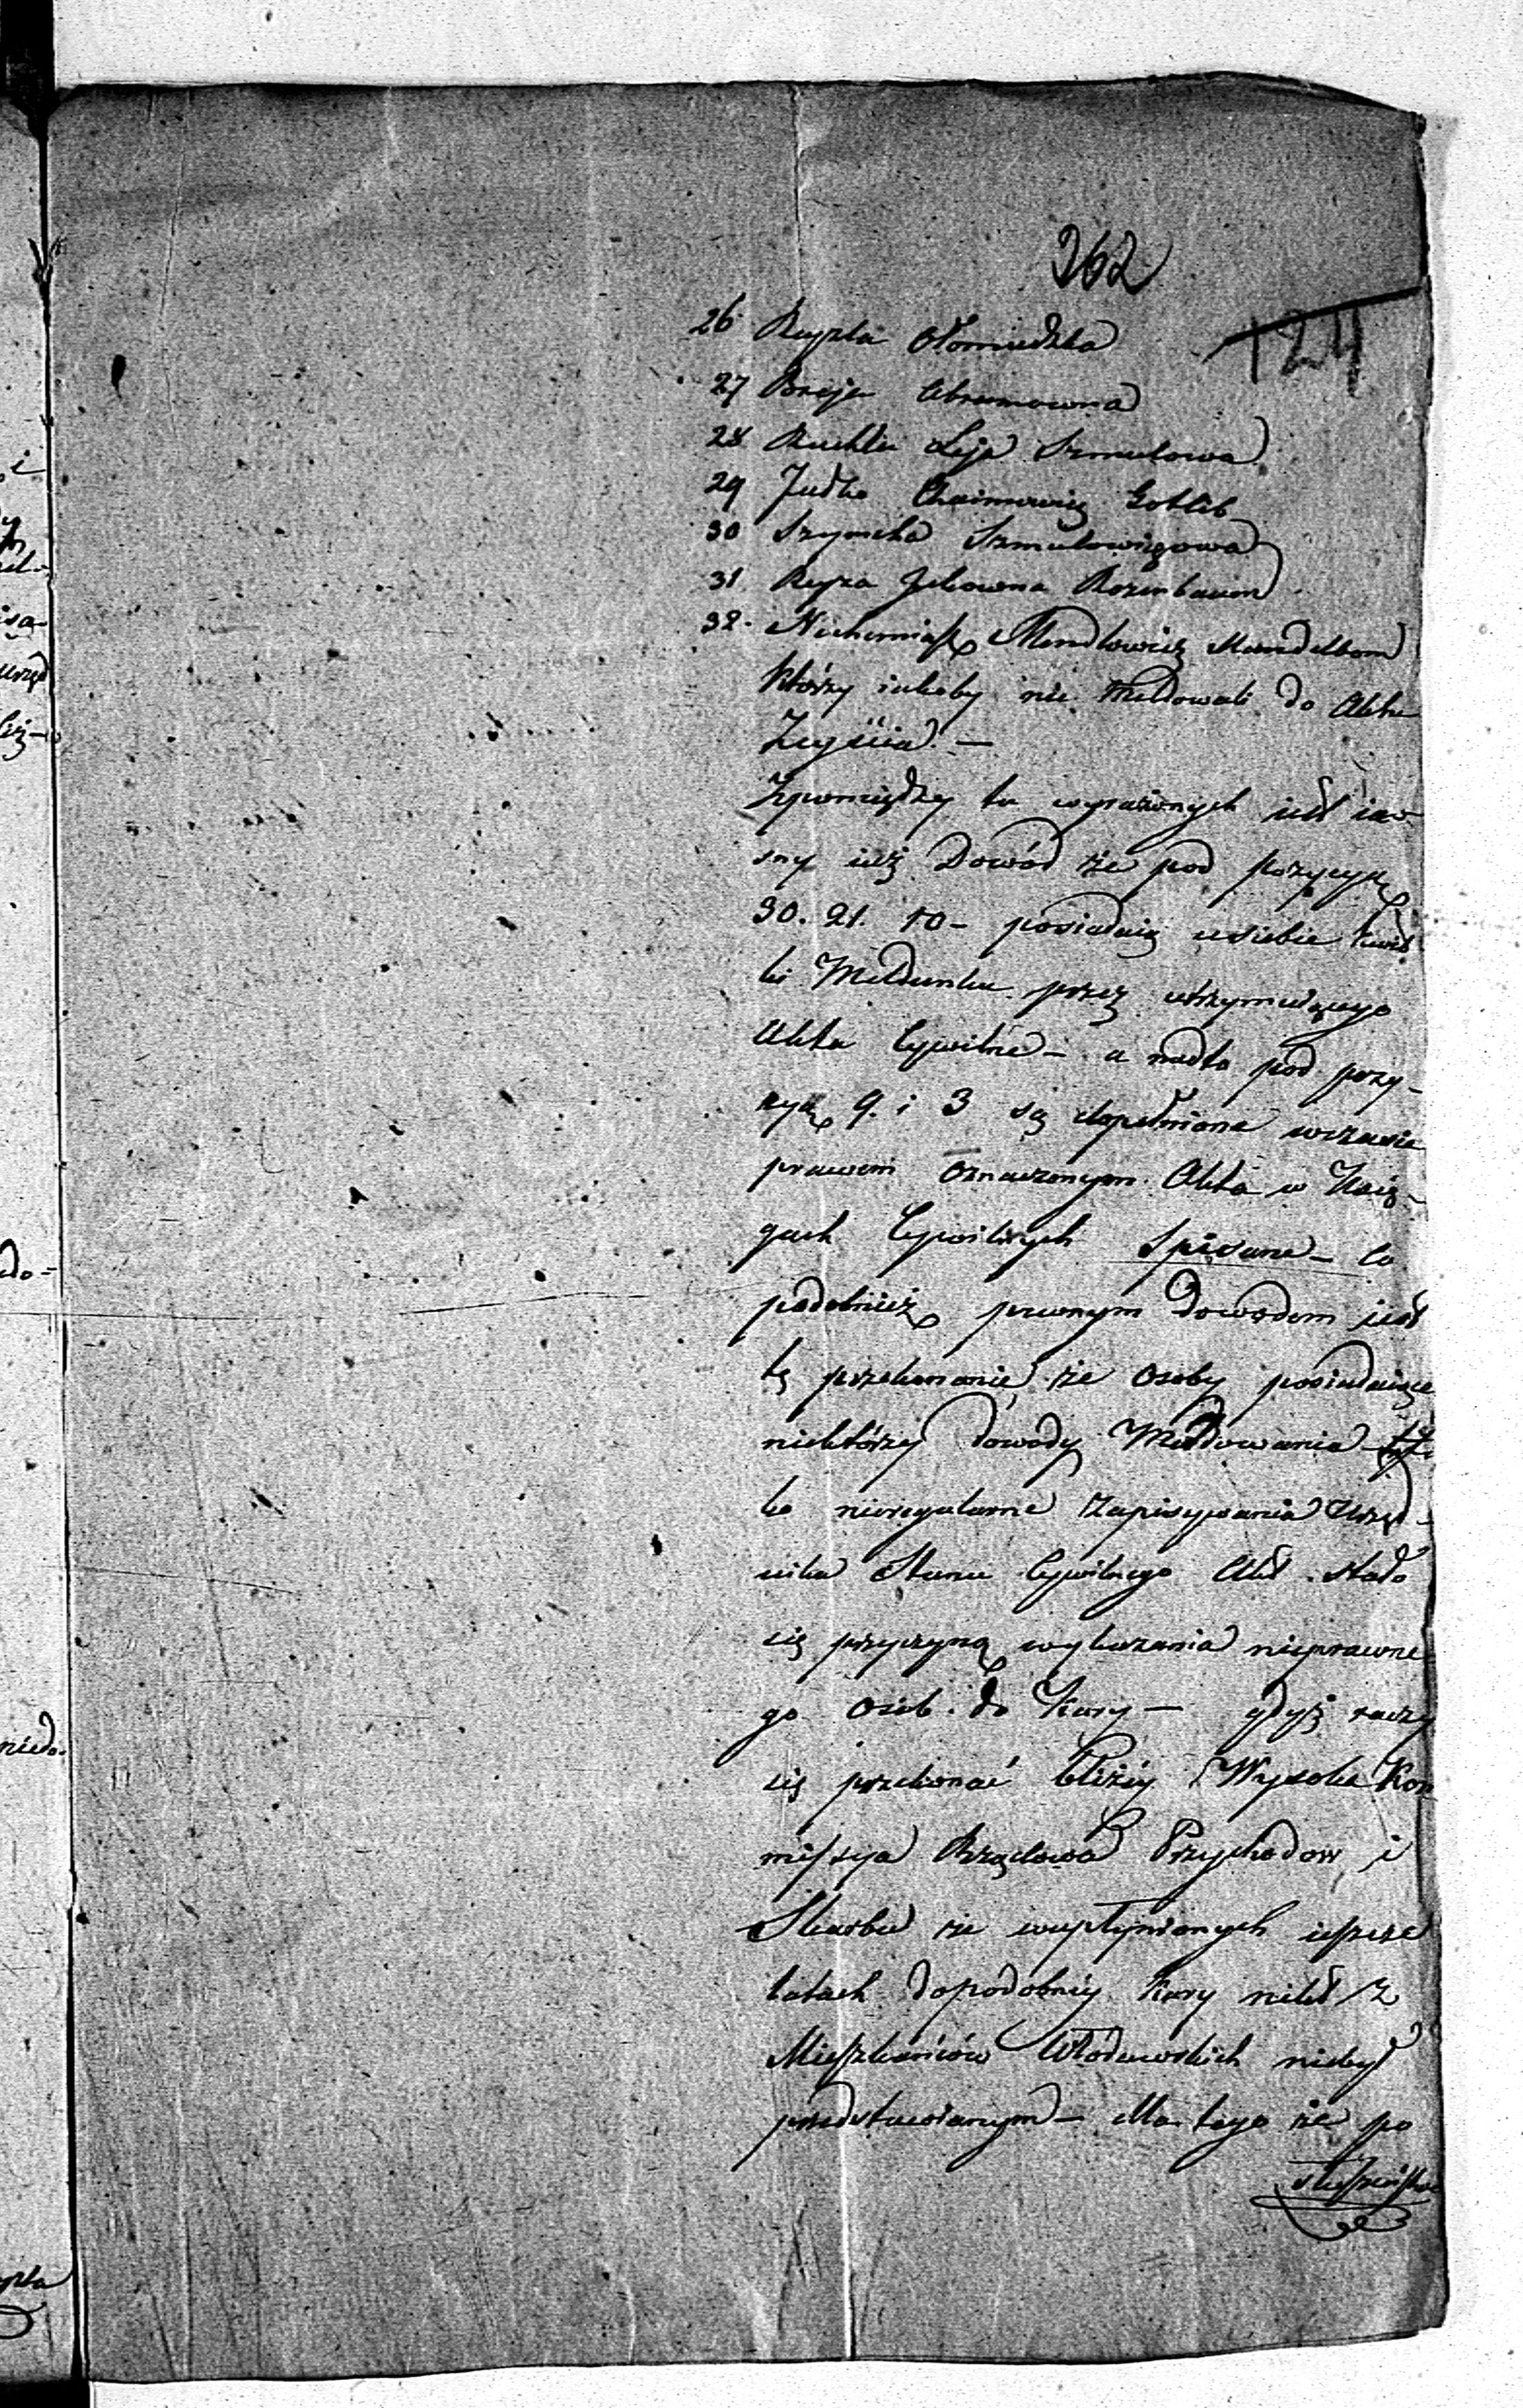 262
124
26 Ruzla
27 Abramowna
28 Ruchla Leja Szmulowa
29 Judka Chaimowicz Gotlib
30 Szymcha Szmulowiczowa
31. Reyza Rozenbaum
32. Mendlowicz Mandelbom
Którzy iakoby nie Meldowali do Akt
Zeyścia. —
Zpomiędzy tu wyrażonych iest iaw-
ny iuż Dowód że pod pozycyą
30. 21. 10 — posiadaią u siebie kwit
ki Meldunku przez utrzymuiącego
Akta Cywilne — a nadto pod pozy-
cyą 9. i 3 są dopełnione wczasie
prawem oznaczonym Akta w Xię-
gach Cywilnych Spisane — Co
podobnież pewnym Dowodem iest
przekonanie że Osoby posiadaiące
niektórzy dowody Meldowania
ko nieregularne zapisywania Urzęd-
nika Stanu Cywilnego Akt. Stało
się przyczyną wykazania nieprawne
go osob do Kary — gdyż raczy
się przekonać bliżéy Wysoka Kom
missya Rządowa Przychodow i
Skarbu że wupłynionych ieszcze
latach dopodobnéy Kary nikt z
Mieszkańców Włodawskich niebył
przedstawianym — dla tego że po